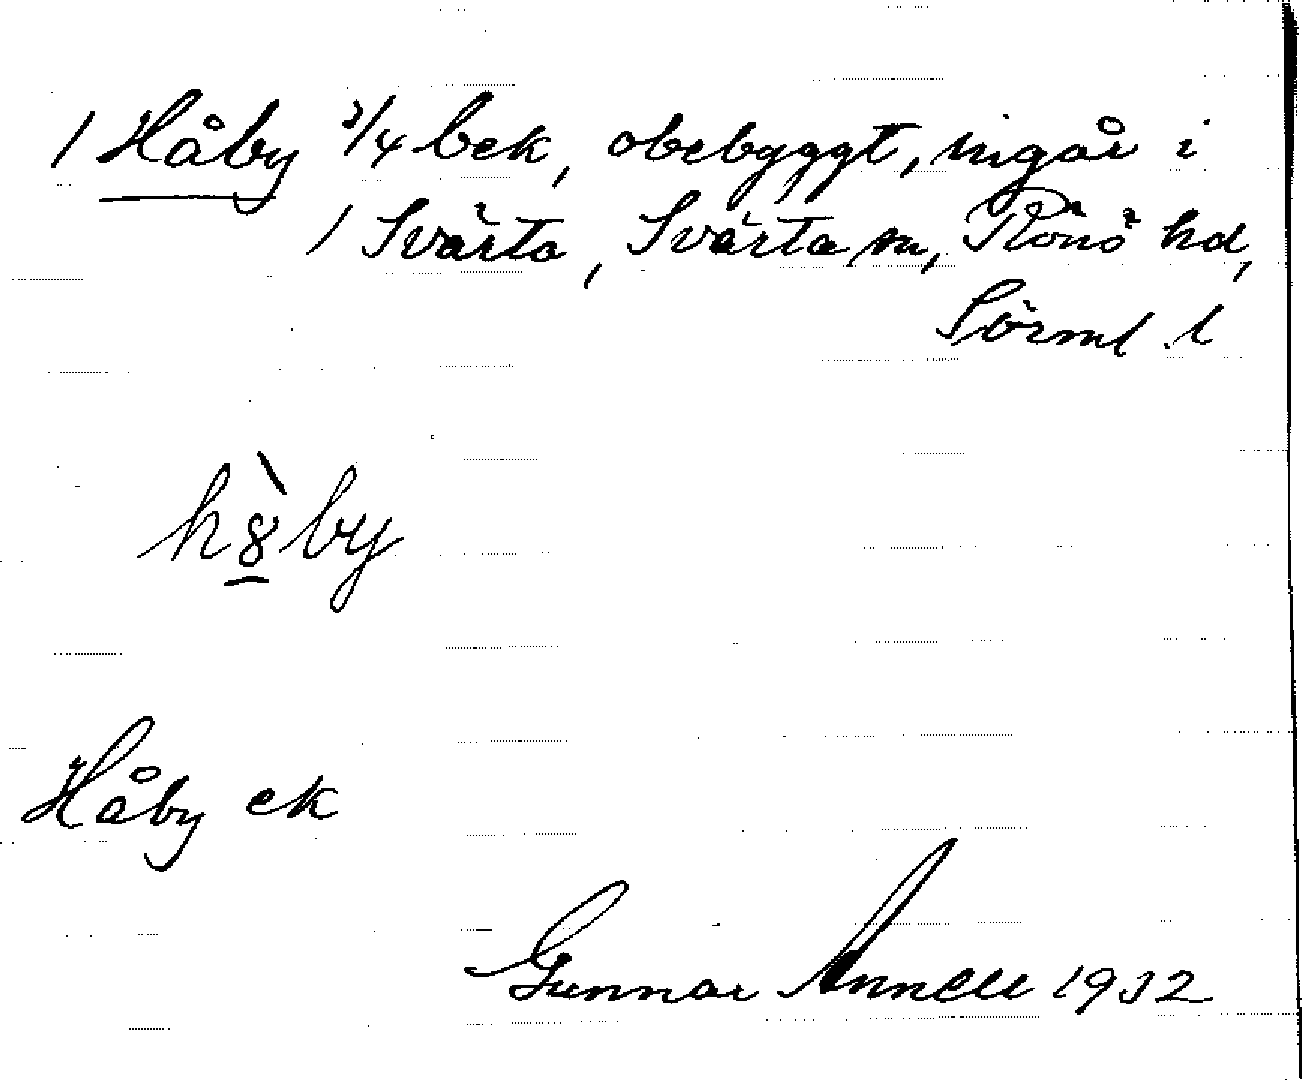 1 Håby 3/4 bek, obebyggt, ingår i
1 Svärta, Svärta sn, Rönö hd,
Sörml. l
hö̀by
Håby ek
Gunnar Annell 1932